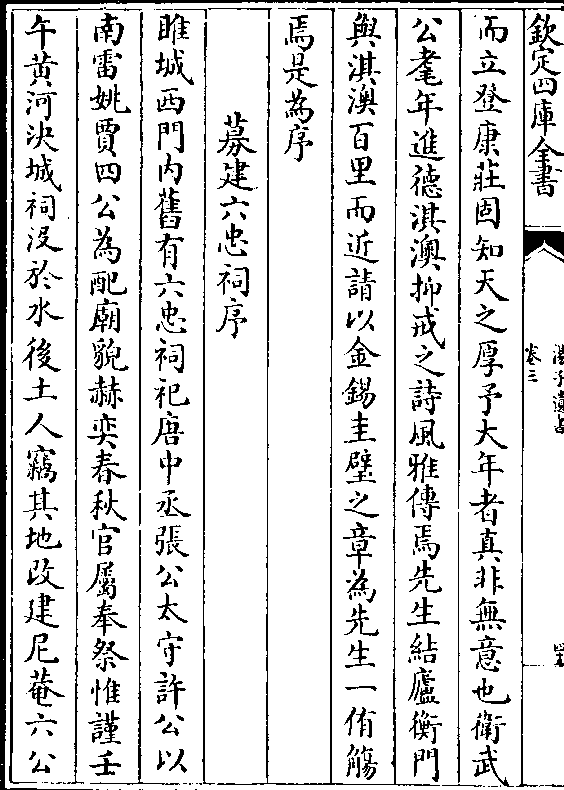 欽定四庫全書
卷三
而立登康莊固知天之厚予大年者真非無意也衛武
公耄年進德淇澳抑戒之詩風雅傳焉先生結廬衡門
與淇澳百里而近請以金錫圭璧之章為先生一侑觴
焉是為序
募建六忠祠序
睢城西門内舊有六忠祠祀唐中丞張公太守許公以
南雷姚賈四公為配廟貌赫奕春秋官屬奉祭惟謹壬
午黄河決城祠没於水後土人竊其地改建尼菴六公